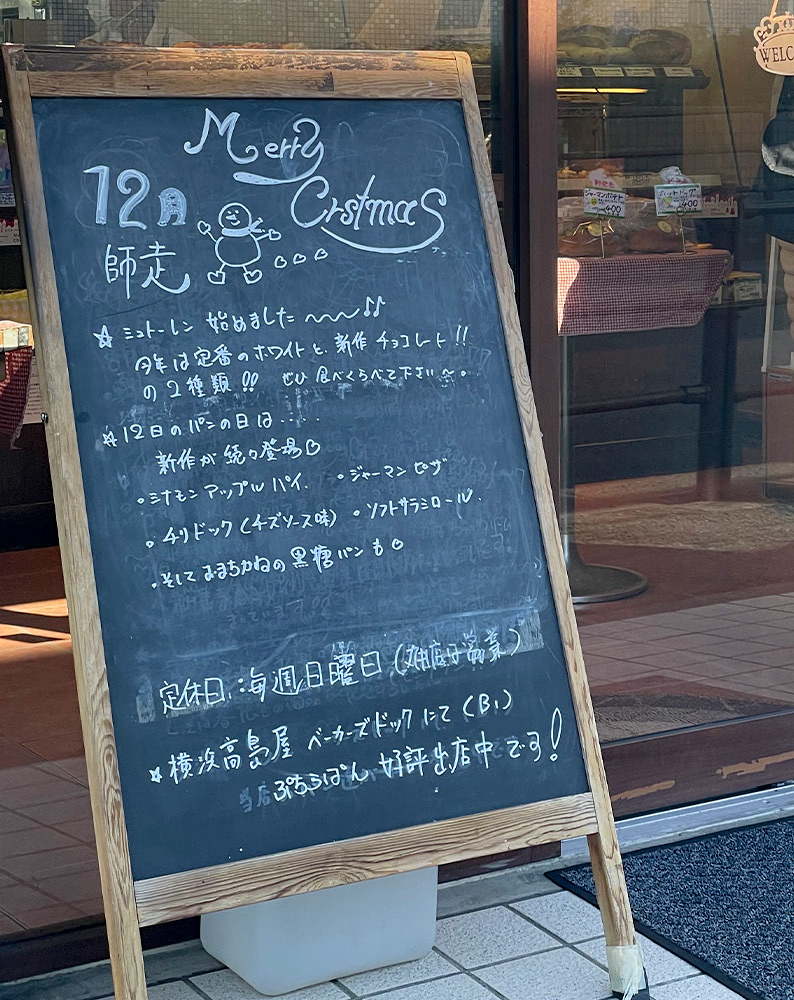 Merry
Crstmas
12月
師走
☆ シュトーレン 始めました 〜〜〜♪♪
今年は定番のホワイトと、新作 チョコレート!!
の2種類!! ぜひ 食べくらべて下さい〜。
☆12日のパンの日は・・・・・
新作が 続々登場
・シナモンアップルパイ. ・ジャーマンピザ
・チリドック(チズソース味) ・ソフトサラミロール.
・そして おまちかねの黒糖パンも
定休日:毎週日曜日(
☆横浜高島屋 ベーカーズドックにて(B1)
ぷちらぱん 好評出店中です!
当店
ジャーマンポテト
400
ホットドッグ
400
WELC